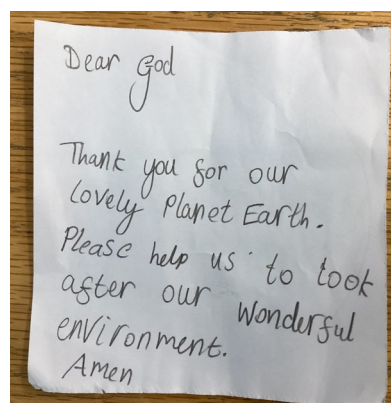 Dear God
Thank you for our
lovely Planet Earth.
Please help us to look
after our wonderful
environment.
Amen